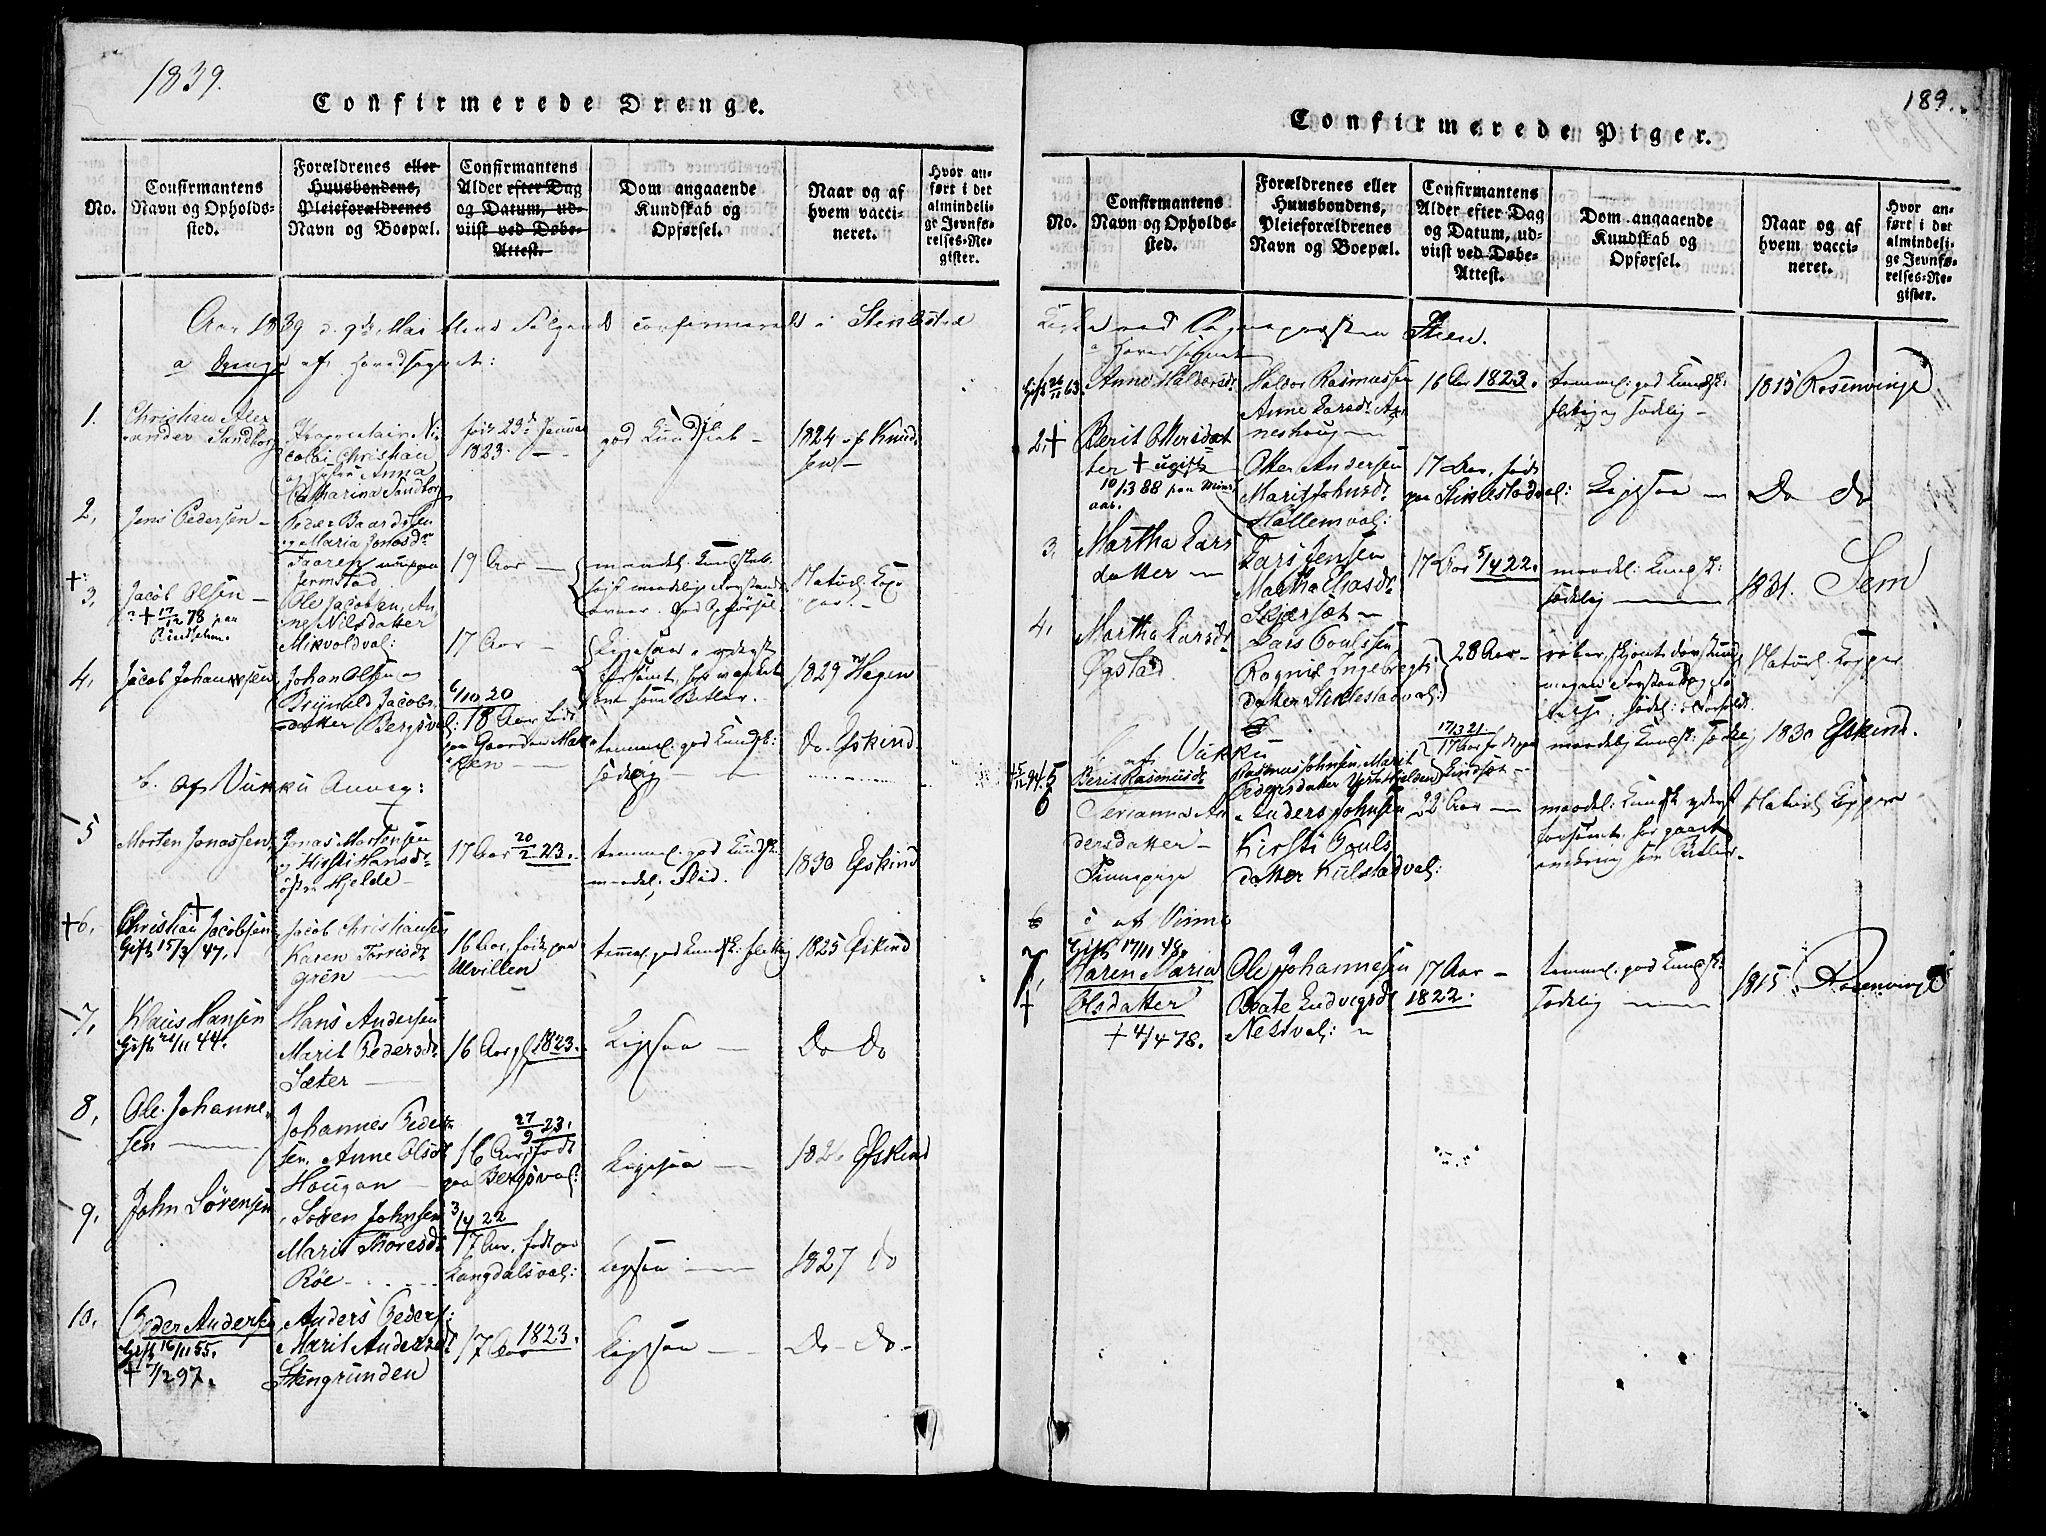 1839.
Confirmerede Drenge.
No.
Confirmantens
Navn og Opholds-
sted.
Forældrenes eller
Huusbondens,
Pleieforældrenes
Navn og Boepæl.
Confirmantens
Alder efter Dag
og Datum, ud-
viist ved Døbe-
Attest.
Dom angaaende
Kundskab og
Opførsel.
Naar og af
hvem vacci-
neret.
Hvor an-
ført i det
almindeli-
ge Jevnfø-
relses-Re-
gister.
Aar 1839 d. 9de Mai blev Følgende confirmerede i Stiklestad
a Drenge af Hovedsognet:
1.
Christian Alex
ander Sandborg
Nicolai Christian
Anna
Catharina Sandborg
født 23d Januar
1823.
god Kundskab
1824 af Knud
sen
2.
Jens Pedersen
Peder Baardsen
og Maria Jonasdr
Faaren
Jermstad
19 Aar
maadel. Kundskab
god Opførsel
Naturl. Kop
per.
+ 3.
Jacob Olsen
+ 17/12 78 paa
Rindsehm.
Ole Jacobsen, An
ne Nilsdatter
Mikvoldval:
17 Aar
Ligesaa
4.
Jacob Johannesen
Johan Olsen
Brynild Jacobs
datter Bergsval:
6/10 20
18 Aar født
paa Gaarden Mak
sen
temmel: god Kundsk:
sædelig
1829 Hagen
do. Efskind
b. Af Vukku Annex:
5
Morten Jonassen
Jonas Mortensen
Kirsti Hansdr
østre Hjelde
17 Aar 20/2 23.
temmel: god Kundsk:
maadel: Flid.
1830 Efskind
+6.
Christian Jacobsen
Gift 15/3 47.
Jacob Christiansen
Karen Torrisdr
Grön
16 Aar, født paa
Ulvillen
temmel. god Kundsk: flittig
1825 Efskind
7.
Klaus Hansen
Hans Andersen
Marit Pedersdr
Sæter
16 Aar 1823.
Ligesaa
Do Do
8.
Ole Johanne-
sen
Johannes Peder
sen, Anne Olsdr
Hougan
27/9 23.
16 Aar, født
paa Bergsval:
Ligesaa
1826 Efskind
9.
John Sörensen
Sören Johnsen
Marit Thoresdr
Röe
3/4 22
17 Aar, født paa
Langdalsval:
Ligesaa
1827 do
10.
Peder Andersen
Gift 16/11 55.
+ 7/2 97.
Anders Peders:
Marit Andersdr
Stengrunden
17 Aar 1823.
Ligesaa
Do - do -
189.
Confirmerede Piger.
No.
Confirmantens
Navn og Opholds-
sted.
Forældrenes eller
Huusbondens,
Pleieforældrenes
Navn og Boepæl.
Confirmantens
Alder efter Dag
og Datum, ud-
viist ved Døbe-
Attest.
Dom angaaende
Kundskab og
Opførsel.
Naar og af
hvem vacci-
neret.
Hvor an-
ført i det
almindeli-
ge Jevnfø-
relses-Re-
gister.
Kirke ved Sognepresten Steen.
a Hovedsognet
Gift 26/11 63.
Anne Haldorsdr
Haldor Rasmussen
Anne Larsdr Ag
neshoug
16 Aar 1823.
temmel: god Kundsk:
flittig, sædelig
1815 Rosenvinge
2. +
Berit Ottersdat
ter + ugift
10/1388 paa
Otter Andersen
Marit Johnsdr
Hallemval:
17 Aar, født
paa Stiklestadval:
Ligesaa
Do do
3.
Martha Lars
datter
Lars Jensen
Martha
Skjersæt
17 Aar 5/4 22.
maadel: Kundsk:
sædelig
1831. Sem
4.
Martha Larsdr
Øgstad
Lars Poulsen
Ragnil Ingebregts
datter Stiklestadval:
28 Aar
Naturl. Kopper
b. af Vukku
5
Berit Rasmusdr
Rasmus Johnsen, Marit
Pedersdatter
17/3 21
17 Aar født paa
Lindsæt
maadelig Kundsk: sædelig
1830 Efskind.
6
Serianna An
dersdatter
Tinnepige
Anders Johnsen
Kirsti Pouls
datter Kulstadval:
22 Aar
maadel: Kundsk yderst
forsømt, har gaaet
omkring som Betler
Naturl. Kopper
c af Vinne
7.
+
Gift 17/11 48.
Karen Maria
Olsdatter
+ 4/4 78.
Ole Johannesen
Beate Ludvigsdr
Nestval:
17 Aar
1822.
temmel. god Kundsk:
sædelig
1815. Rosenvinge